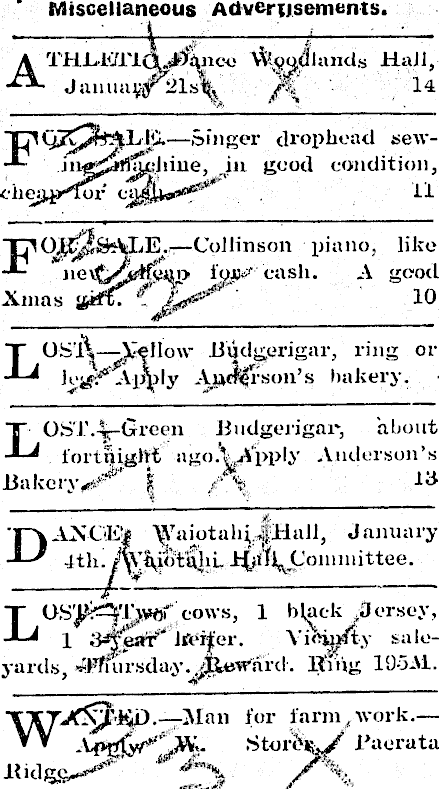 Miscellaneous Advertisements.
ATHLETIC Dance Woodlands Hall,
January 21st. 14
FOR SALE.—Singer drophead sew-
ing machine, in good condition,
cheap for cash. 11
FOR SALE.—Collinson piano, like
new, cheap for cash. A good
Xmas gift. 10
LOST.—Yellow Budgerigar, ring or
leg. Apply Anderson's bakery.
LOST.—Green Budgerigar, about
fortnight ago. Apply Anderson's
Bakery. 13
DANCE, Waiotahi Hall, January
4th. Waiotahi Hall Committee.
LOST.—Two cows, 1 black Jersey,
1 3-year heifer. Vicinity sale-
yards, Thursday. Reward. Ring 195M.
WANTED.—Man for farm work.—
Apply W. Storer, Paerata
Ridge.